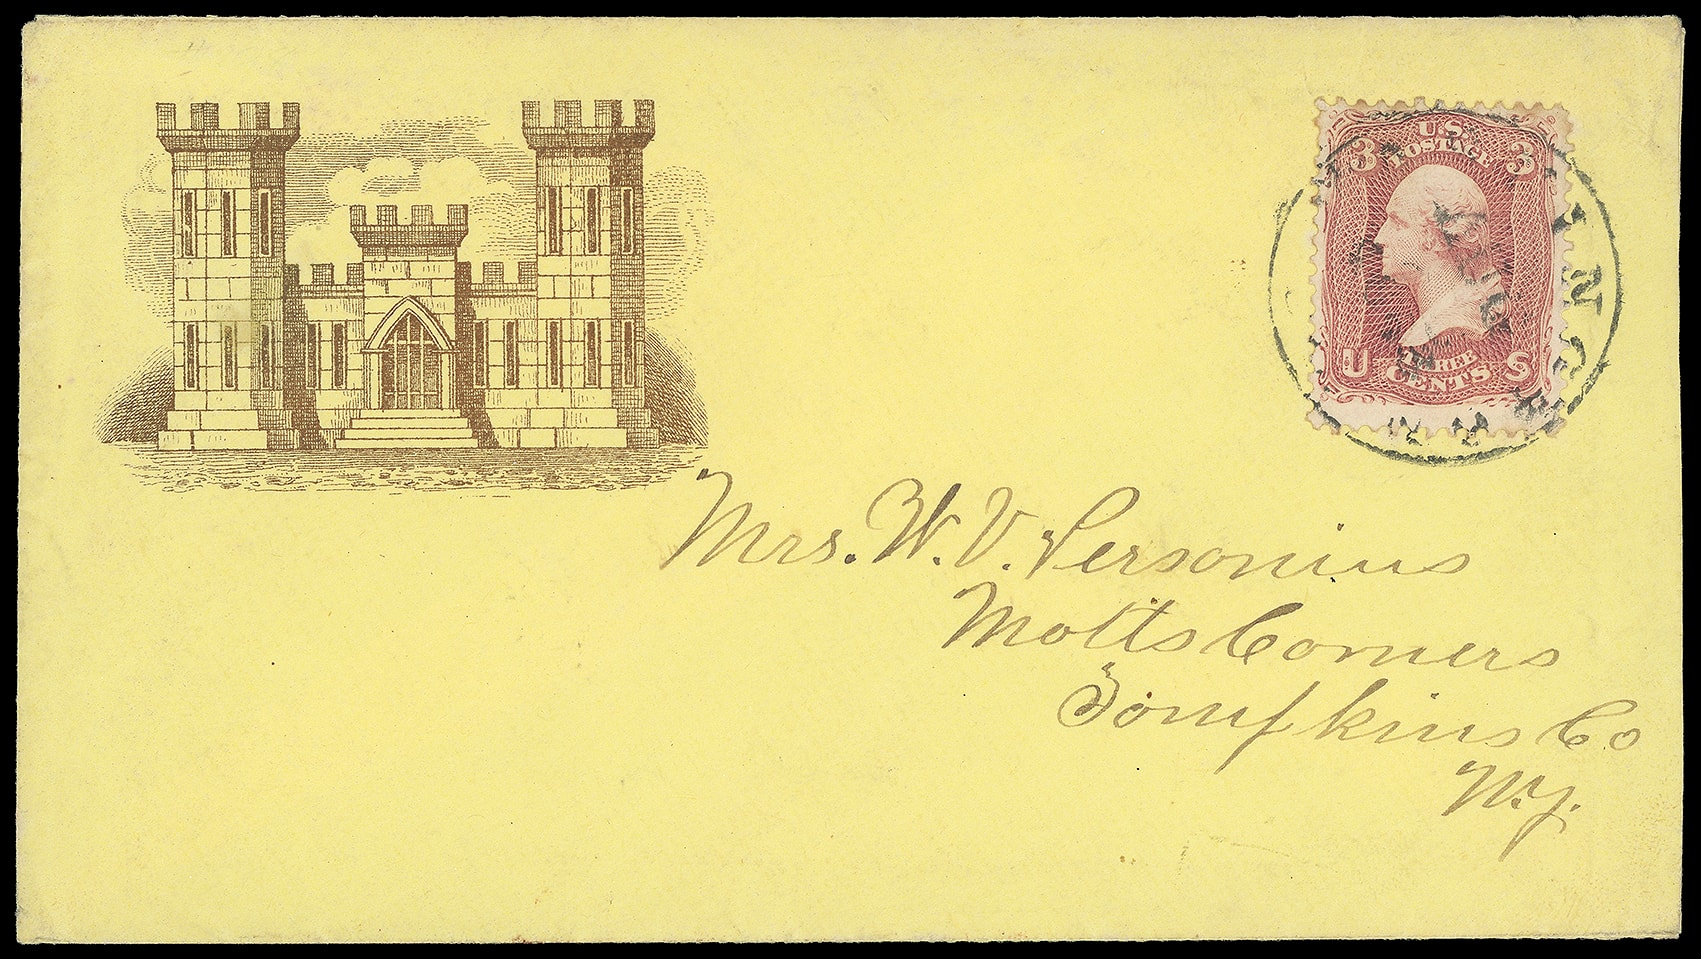 U.S.
POSTAGE
3 3
U THREE S
CENTS
Mrs. W. V. Personius
Motts Corners
Tompkins Co
N.Y.